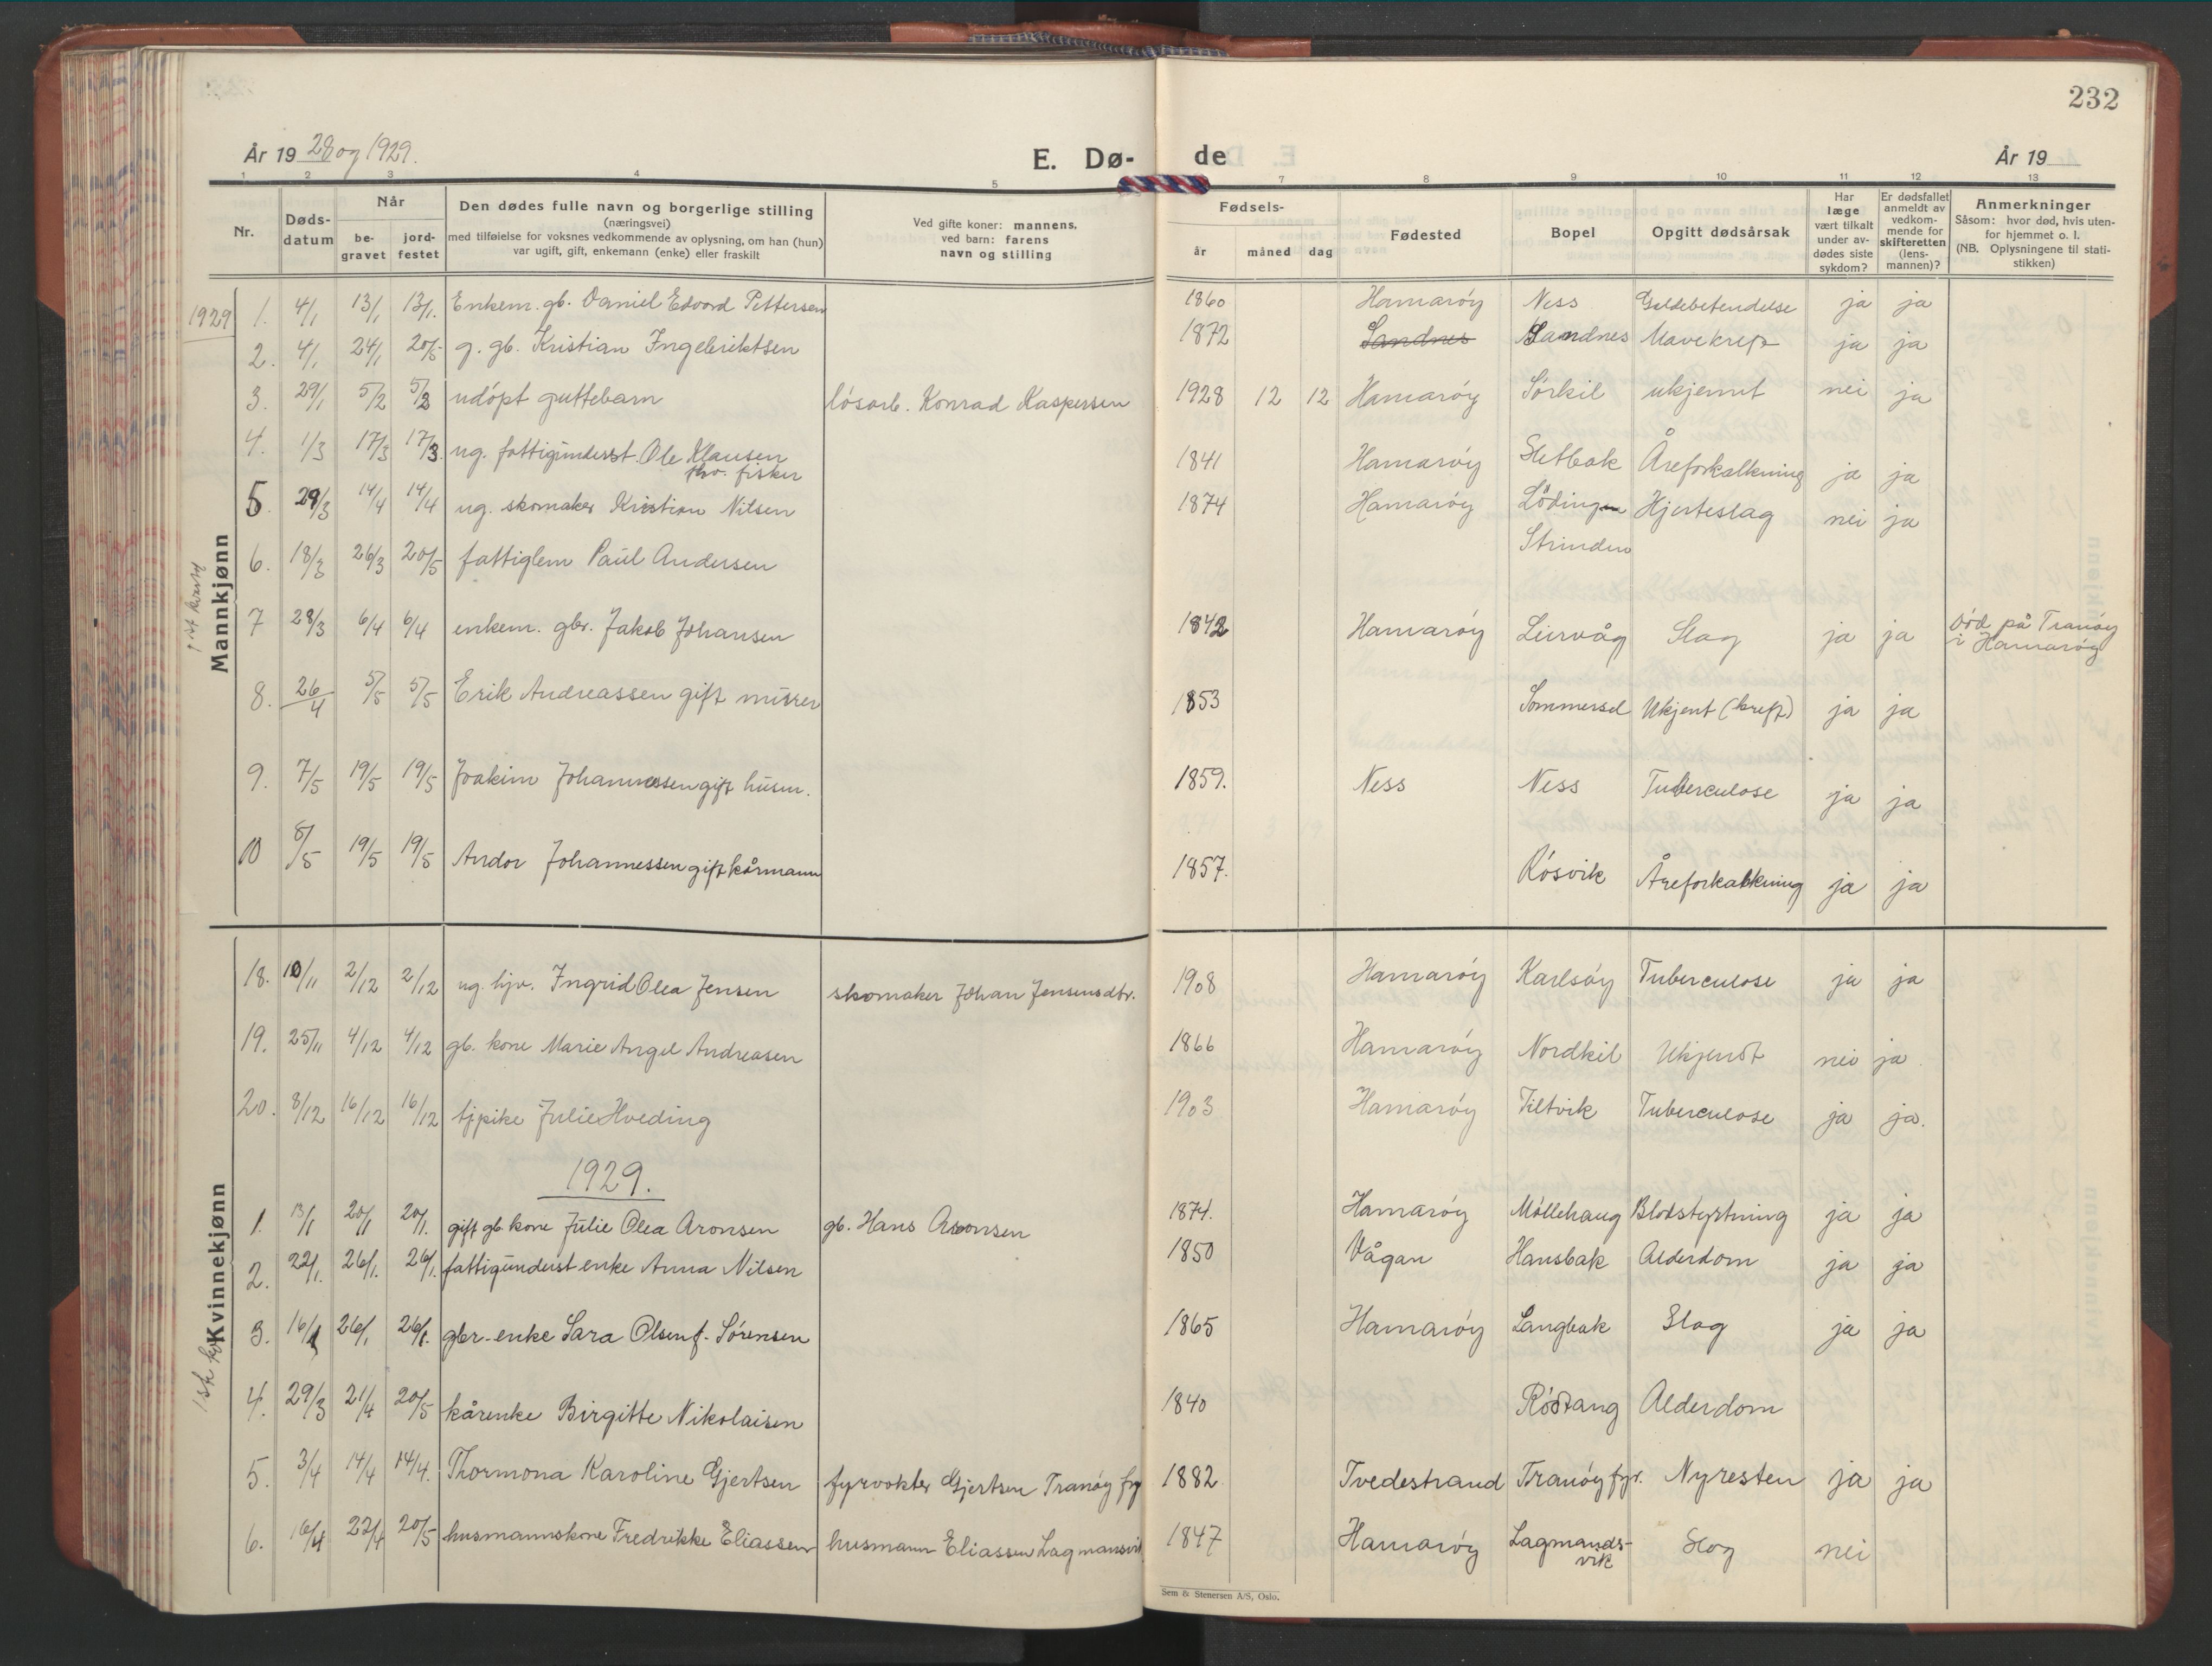 232
År 19 28 og 1929.
E. Dø- de
År 19
1 2 3 4 5 7 8 9 10 11 12 13
Nr.
Døds-
datum
Når
be-
gravet
jord-
festet
Den dødes fulle navn og borgerlige stilling
(næringsvei)
med tilføielse for voksnes vedkommende av oplysning, om han (hun)
var ugift, gift, enkemann (enke) eller fraskilt
Ved gifte koner: mannens.
ved barn: farens
navn og stilling
Fødsels-
år måned dag
Fødested
Bopel
Opgitt dødsårsak
Har
læge
vært tilkalt
under av-
dødes siste
sykdom?
Er dødsfallet
anmeldt av
vedkom-
mende for
skifteretten
(lens-
mannen)?
Anmerkninger
Såsom: hvor død, hvis uten-
for hjemmet o. l.
(NB. Oplysningene til stati-
stikken)
Mannkjønn
1929 1. 4/1 13/1 13/1. Enkem. gb. Daniel Edvard Pettersen 1860 Hamarøy Ness Galdebetendelse ja ja
2. 4/1 24/1 20/5 g. gb. Kristian Ingebriktsen 1872 Sandnes Sandnes Mavekreft ja ja
3. 29/1 5/2 5/2 udøpt guttebarn løsarb. Konrad Kaspersen 1928 12 12 Hamarøy Sørkil ukjennt nei ja
4. 1/3 17/3 17/3. ug. fattigunderst. Ole Klausen 1841 Hamarøy Sletbak Åreforkalkning ja ja
fhv. fisker
5. 29/3 14/4 14/4 ug. skomaker Kristian Nilsen 1874 Hamarøy Lödingen Hjerteslag nei ja
6. 18/3 26/3 20/5 fattiglem Paul Andersen Strinden
7 28/3 6/4 6/4 enkem. gbr. Jakob Johansen 1842 Hamarøy Leirvåg Slag ja ja Død på Tranøy
i Hamarøy
8. 26/4 5/5 5/5 Erik Andreassen gift murer 1853 Sommersel Ukjent (kreft) ja ja
9. 7/5 19/5 19/5 Joakim Johannessen gift husm. 1859. Ness Ness Tuberculose ja ja
10 8/5 19/5 19/5 Andor Johannessen gift kårmann 1857. Røsvik Åreforkalkning ja ja
Kvinnekjønn
18. 10/11 2/12 2/12 ug. hjv. Ingrid Olea Jensen skomaker Johan Jensens dtr. 1908 Hamarøy Karlsøy Tuberculose ja ja
19. 25/11 4/12 4/12 gb. kone Marie Angel Andreasen 1866 Hamarøy Nordkil Ukjendt nei ja.
20. 8/12 16/12 16/12 tjpike Julie Hveding 1903 Hamarøy Tiltvik Tuberculose ja ja.
1929.
1. 13/1 20/1 20/1. gift gb kone Julie Olea Aronsen gb. Hans Aronsen 1874. Hamarøy Møllehaug Blodstyrtning ja ja
2. 22/1. 26/1. 26/1. fattigunderst enke Anna Nilsen 1850 Vågan Hansbak Alderdom ja ja
3. 16/1 26/1 26/1. gbr-enke Sara Olsen f. Sørensen 1865 Hamarøy Langbak Slag ja ja
4. 29/3 21/4 20/5 kårenke Birgitte Nikolaisen 1840 Rødtang Alderdom
5. 3/4 14/4 14/4. Thormona Karoline Gjertsen fyrvokter Gjertsen Tranøy fyr 1882 Tvedestrand Tranøy fyr. Nyresten ja ja
6. 16/4 22/4 20/5 husmannskone Fredrikke Eliassen husmann Eliassen Lagmansvik 1847 Hamarøy Lagmands-
vik Slag nei
Sem & Stenersen A/S, Oslo.